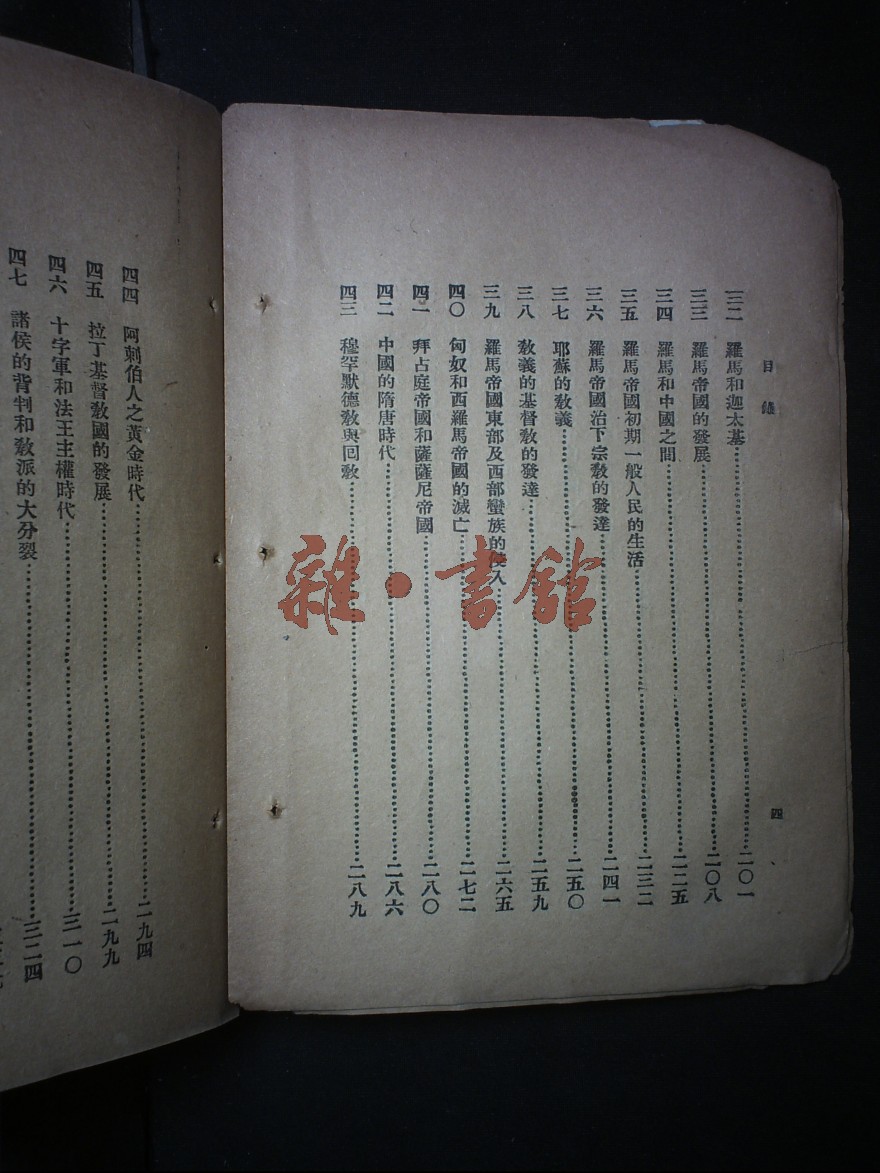 目錄
三二 羅馬和迦太基 二〇一
三三 羅馬帝國的發展 二〇八
三四 羅馬和中國之間 二二五
三五 羅馬帝國初期一般人民的生活 二三二
三六 羅馬帝國治下宗教的發達 二四一
三七 耶蘇的教義 二五〇
三八 教義的基督教的發達 二五九
三九 羅馬帝國東部及西部蠻族的侵入 二六五
四〇 匈奴和西羅馬帝國的滅亡 二七二
四一 拜占庭帝國和薩薩尼帝國 二八〇
四二 中國的隋唐時代 二八六
四三 穆罕默德教與回教 二八九
四
四四 阿刺伯人之黃金時代 二九四
四五 拉丁基督教國的發展 二九九
四六 十字軍和法王主權時代 三一〇
四七 諸侯的背判和教派的大分裂 三二四
雜·書館